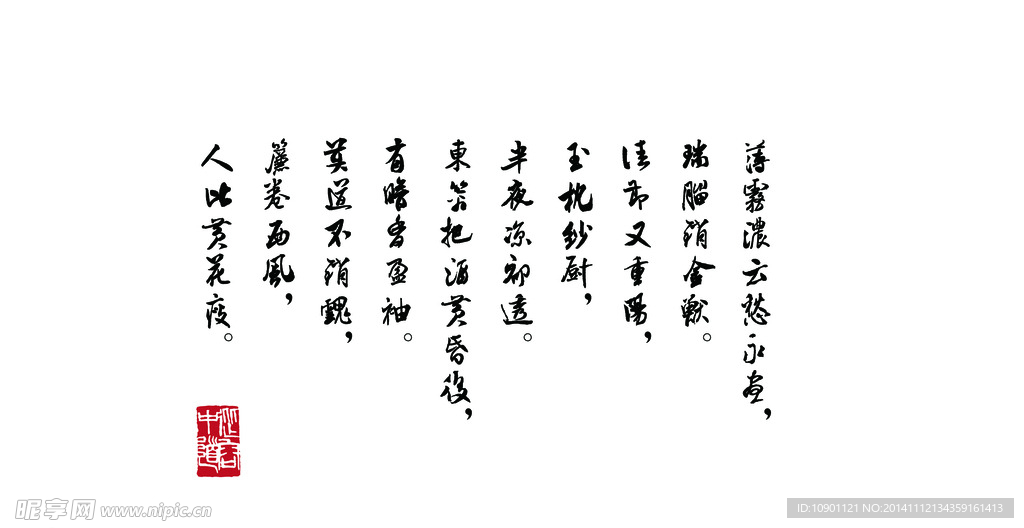 薄霧濃云愁永昼，
瑞腦消金獸。
佳节又重陽，
玉枕紗厨，
半夜凉初透。
東篱把酒黄昏後，
有暗香盈袖。
莫道不消魂，
簾卷西風，
人比黄花瘦。
昵享网 www.nipic.cn
ID:10901121 NO:20141112134359161413